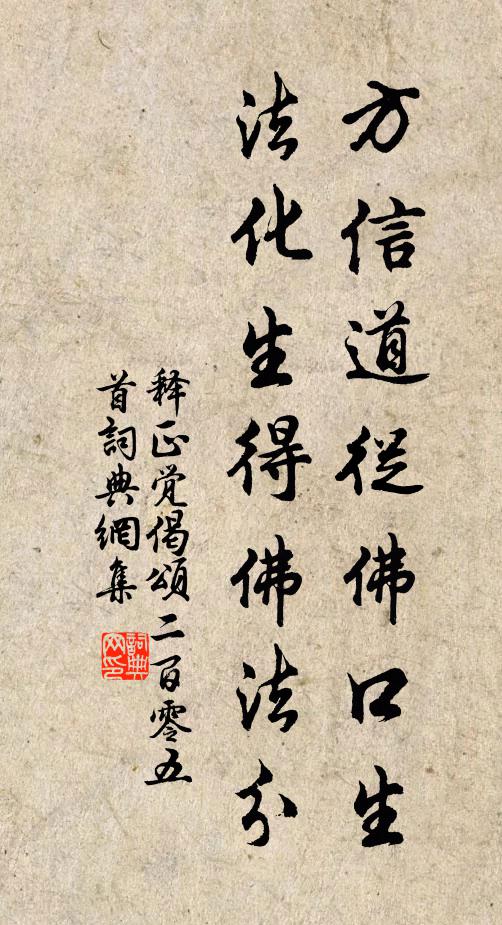 方信道從佛口生
法化生得佛法分
释正觉偈頌二百零五
首詞典網集
詞典网印